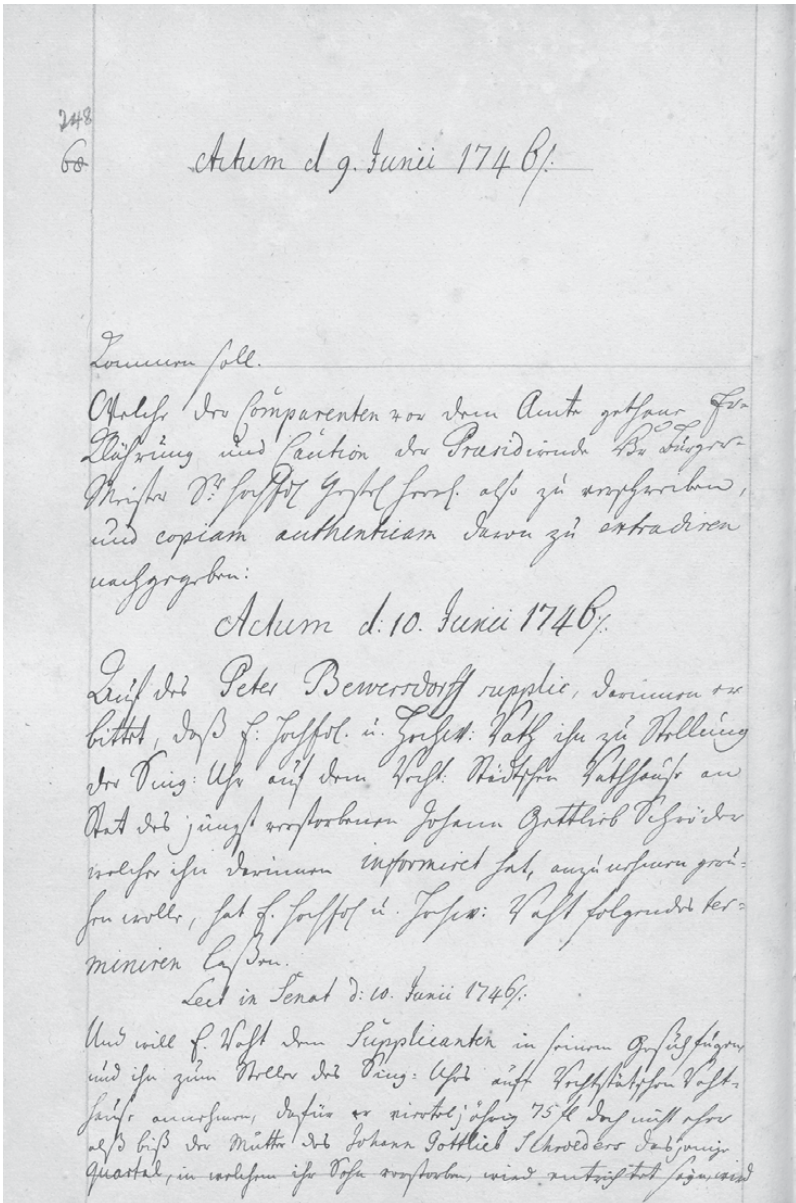 248
60
Actum d 9. Junii 1746/:
kommen soll.
Welche der Comparenten vor dem Amte gethane Er-
klährung und Caution der Præsidirende Hr Bürger-
Meister Sr. Herrl. also zu verschreiben,
und copiam authenticam davon zu extradiren
nachgegeben:
Actum d: 10. Junii 1746/:
Auf des Peter Bewersdorff supplic, darinnen er
bittet, daß E: Hochedl. u. Hochw: Rath ihn zu Stellung
der Sing: Uhr auf dem Recht: Städtschen Rathhause an
Stat des jüngst verstorbenen Johann Gottlieb Schröder
welcher ihn darinnen informiret hat, anzunehmen geru-
hen wolle, hat E. Hochedl u. Hochw: Raht folgendes ter-
miniren laßen.
Lect in Senat d: 10. Junii 1746/:
Und will E. Raht dem Supplicanten in seinem Gesuch fugen
und ihn zum Steller des Sing: Uhrs aufm Rechtstätschen Raht-
hause annehmen, dafür er vierteljährig 75 fl doch nicht eher
alß biß der Mutter des Johann Gottlieb Schroeders dasjenige
Quartal, in welchem ihr Sohn verstorben, wird entrichtet seyn, wird